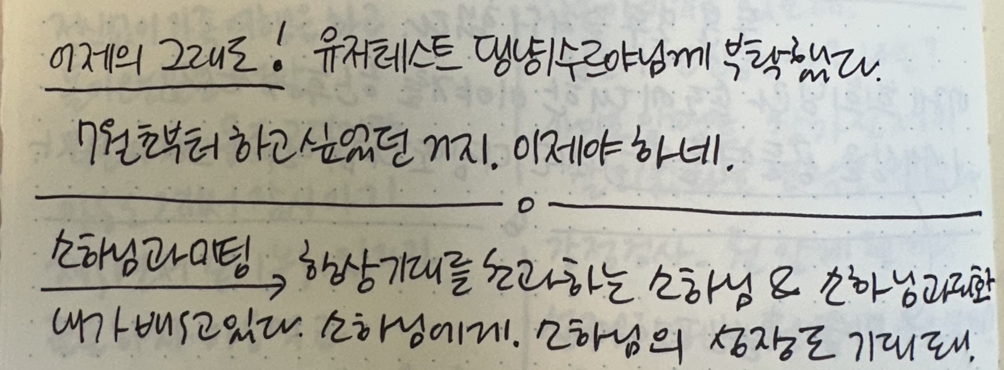 어제의 그래도! 유저테스트 댕냥이수르야님께 부탁했다.
7월초부터 하고싶었던 거지. 이제야 하네.
소하님과미팅 → 항상기대를 초과하는 소하님 & 소하님과대화
내가배우고있다. 소하님에게. 소하님의 성장도 기대돼.